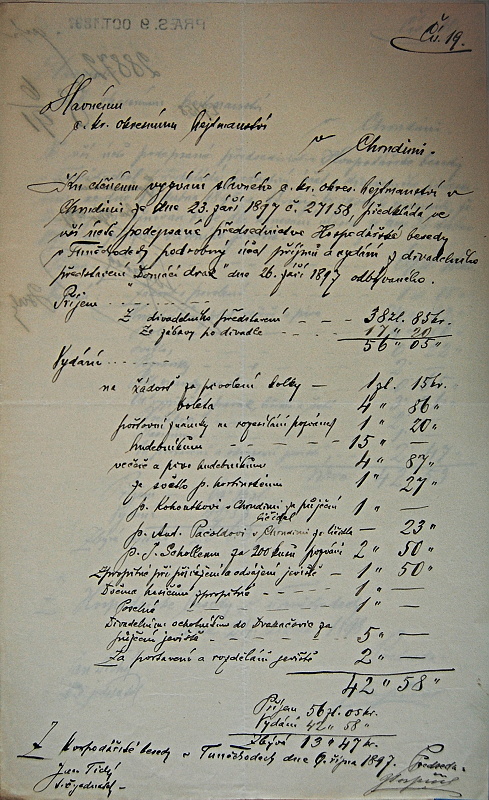 PRÆS. 9 OCT. 1897
28872
Čís. 19.
Slavnému
c. kr. okresnímu hejtmanství
v Chrudimi.
Ku ctěnému vyzvání slavného c. kr. okres. hejtmanství v
Chrudimi ze dne 23. září 1897 č. 27158 předkládá se
níže podepsané předsednictvo Hospodářské besedy
v Tuněchodech podrobný účet příjmů a vydání z divadelního
představení dne 26. září 1897 odbývaného.
Příjem
Z divadelního představení 38 zl. 85 kr.
Ze zábavy po divadle 17 " 20
56 " 05 "
Vydání
na žádost za povolení kolky 1 zl. 15 kr.
boleta 4 " 86 "
poštovní známky na rozesílání pozvání 1 " 20 "
hudebníkům 15 " —
večeře a pivo hudebníkům 4 " 87 "
za světlo p. hostinskému 1 " 27 "
p. Kohoutkovi v Chrudimi za půjčení líčidel 1 " —
p. Ant. Pacoldovi v Chrudimi za líčidla — 23 "
p. J. Schollemu za 200 kusů pozvání 2 " 50 "
Zpropitné při přivážení a odvážení jeviště 1 " 50 "
Dvěma hasičům zpropitné 1 " —
Poselné 1 " —
Divadelním ochotníkům do Dražkovic za
půjčení jeviště 5 " —
Za postavení a rozdělání jeviště 2 " —
42 " 58 "
Příjem 56 zl. 05 kr.
Vydání 42 " 58 "
Zbývá 13 " 47 kr.
Z Hospodářské besedy v Tuněchodech dne 6. října 1897.
Jan Tichý
jednatel
Předseda